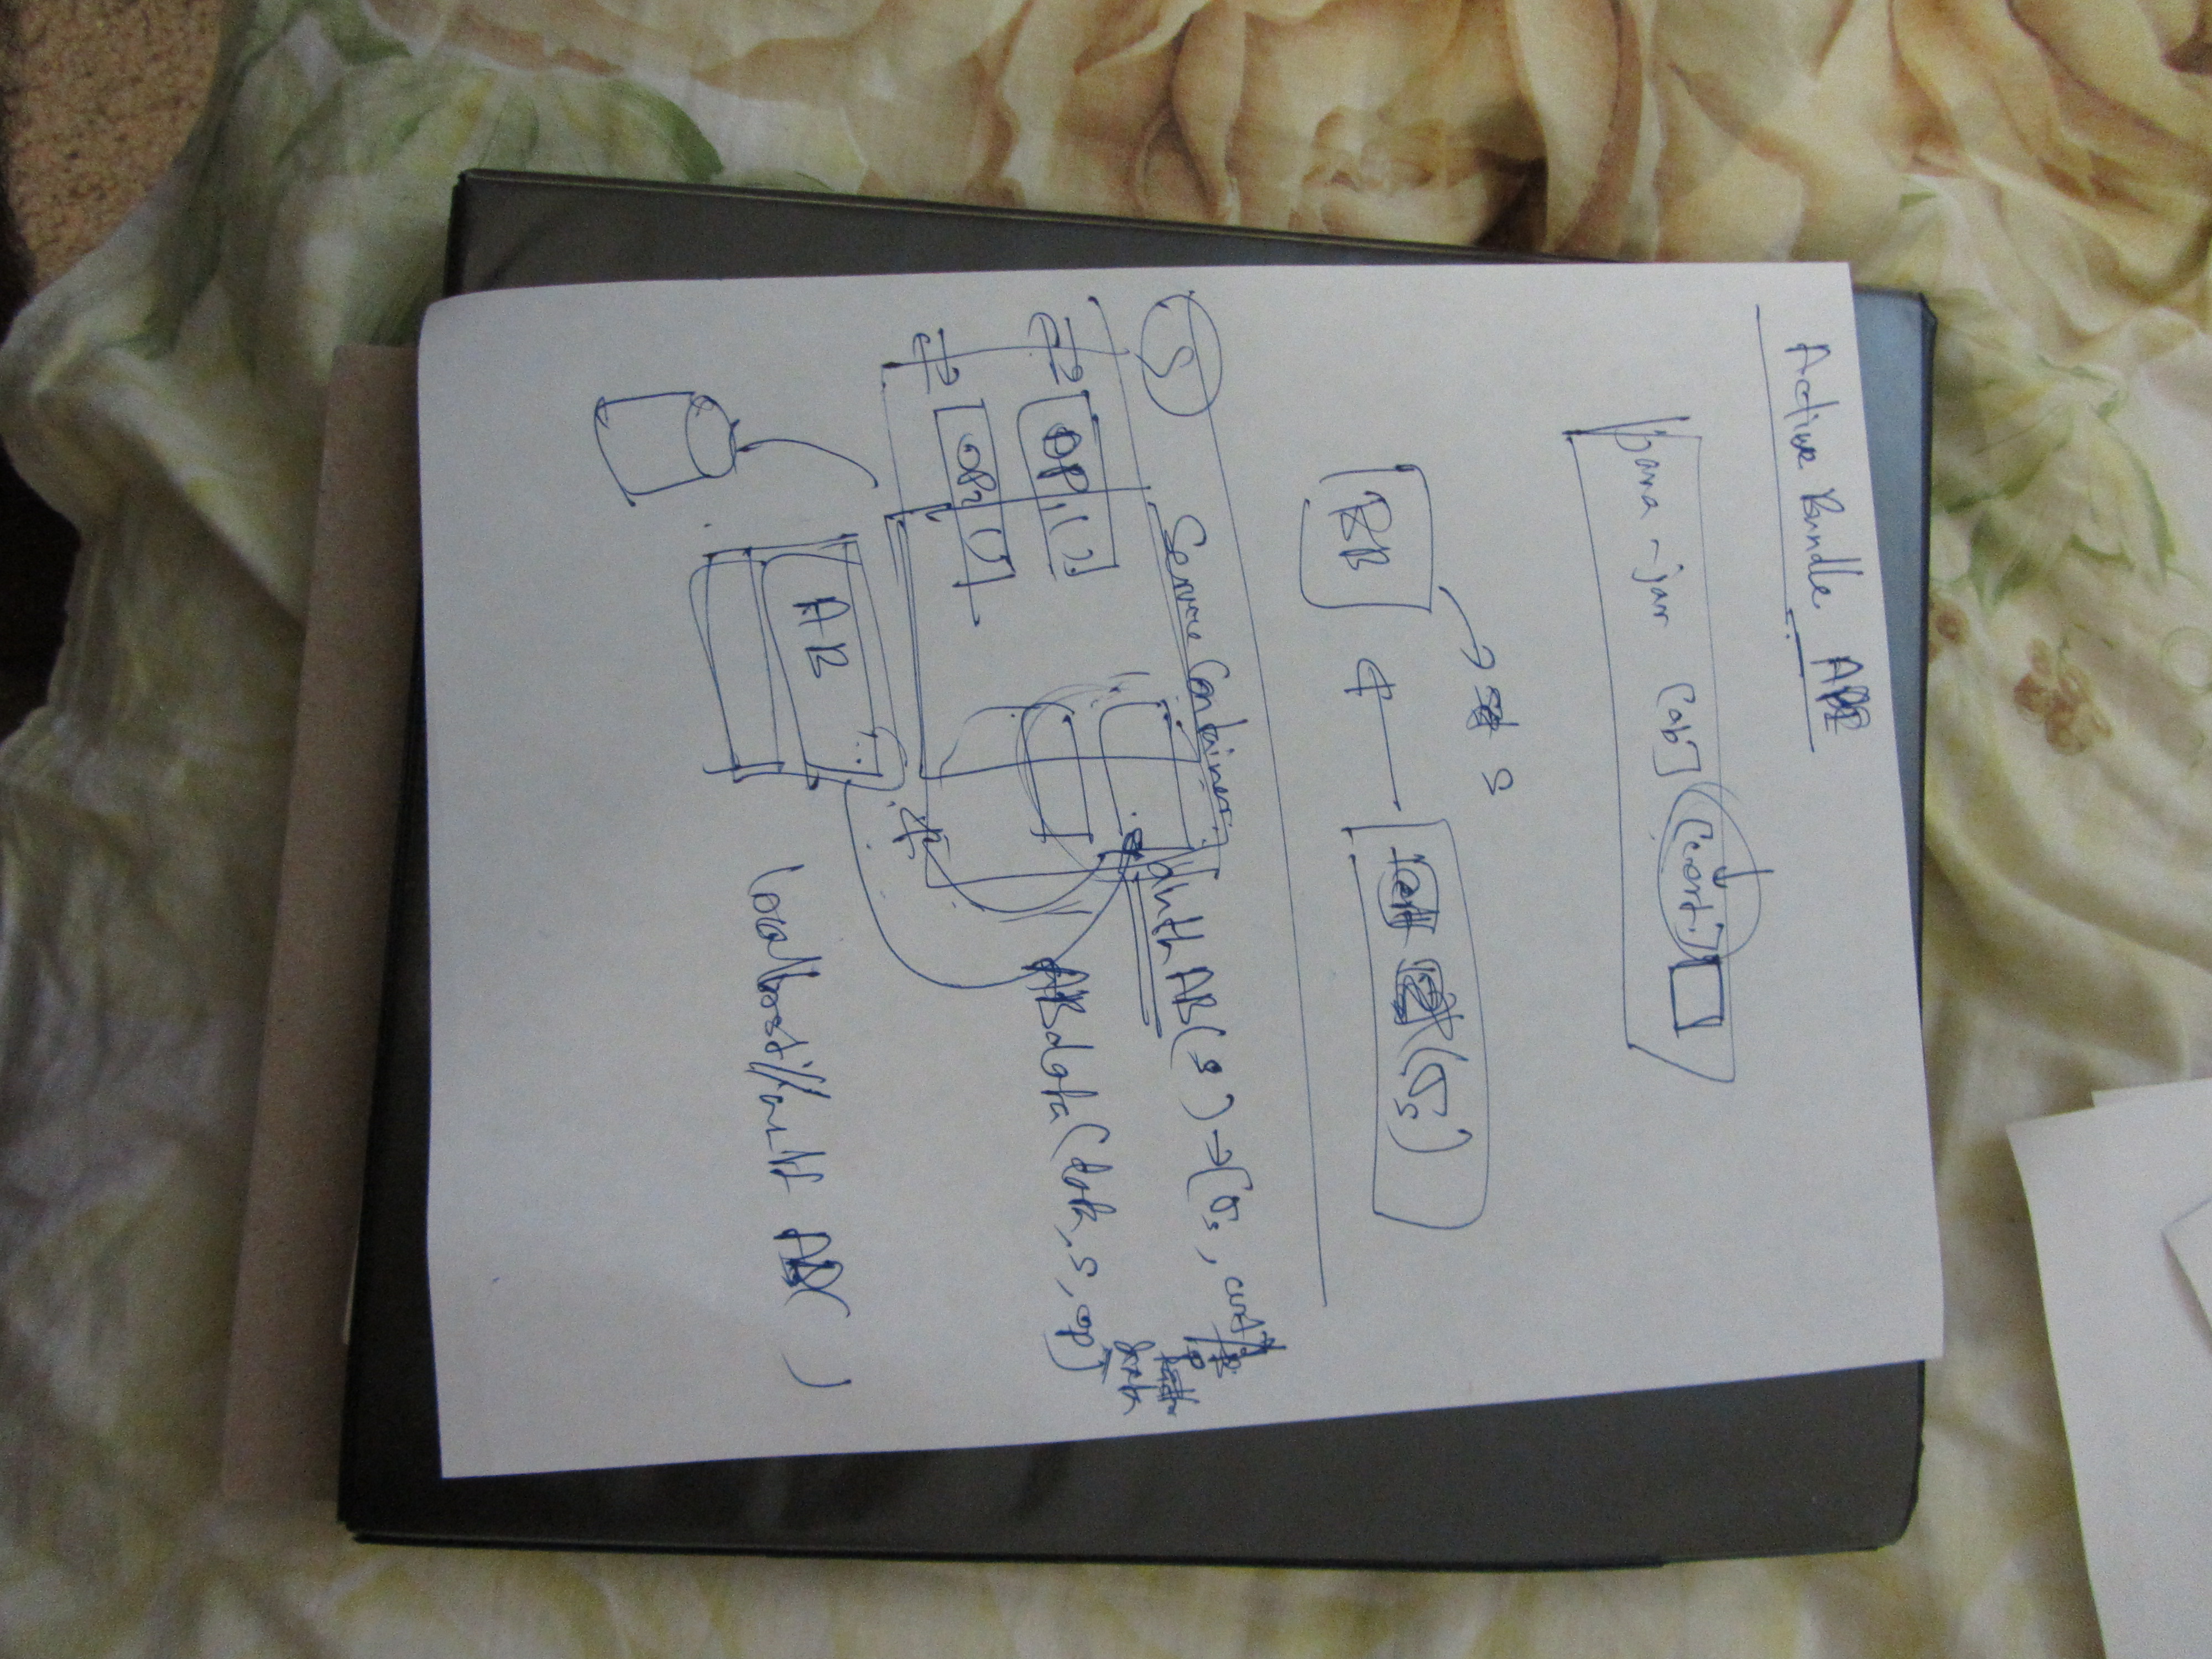 Active Bundle API
java -jar [ab] [cert]
AB → S
(σs)
S
Service Container
OP1()
OP2()
authAB(s) → (σs, cert
ABdata(data, s, op)
AB
localhost//auth AB( )